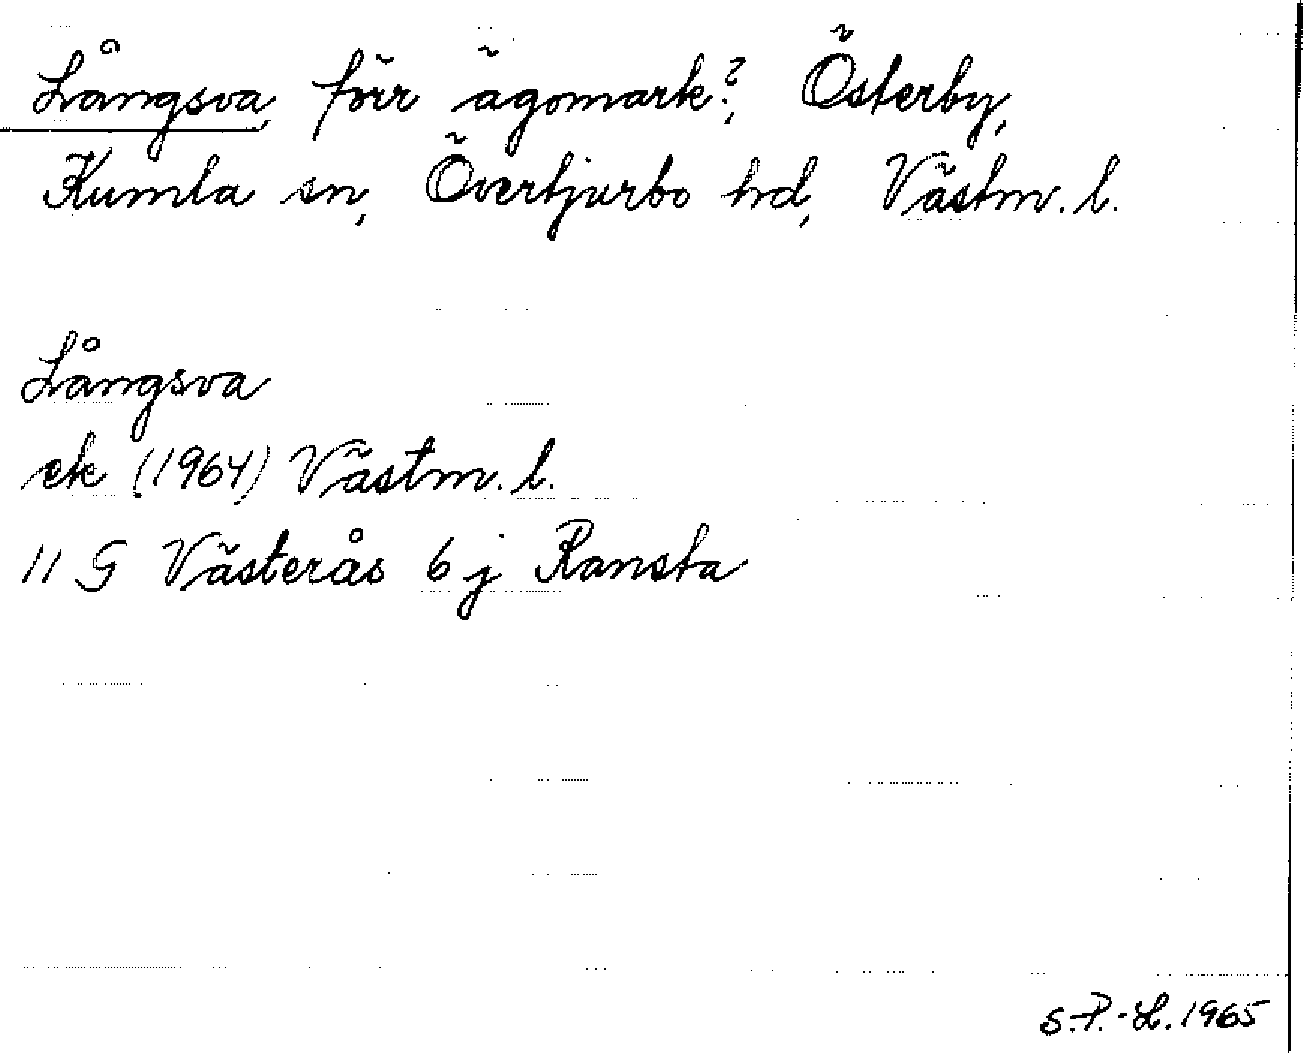 Långsva, förr ägomark?, Österby,
Kumla sn, Övertjurbo hd, Västm. l.
Långsva
ek (1964) Västm. l.
11 G Västerås 6 j Ransta
S.-P.-L. 1965